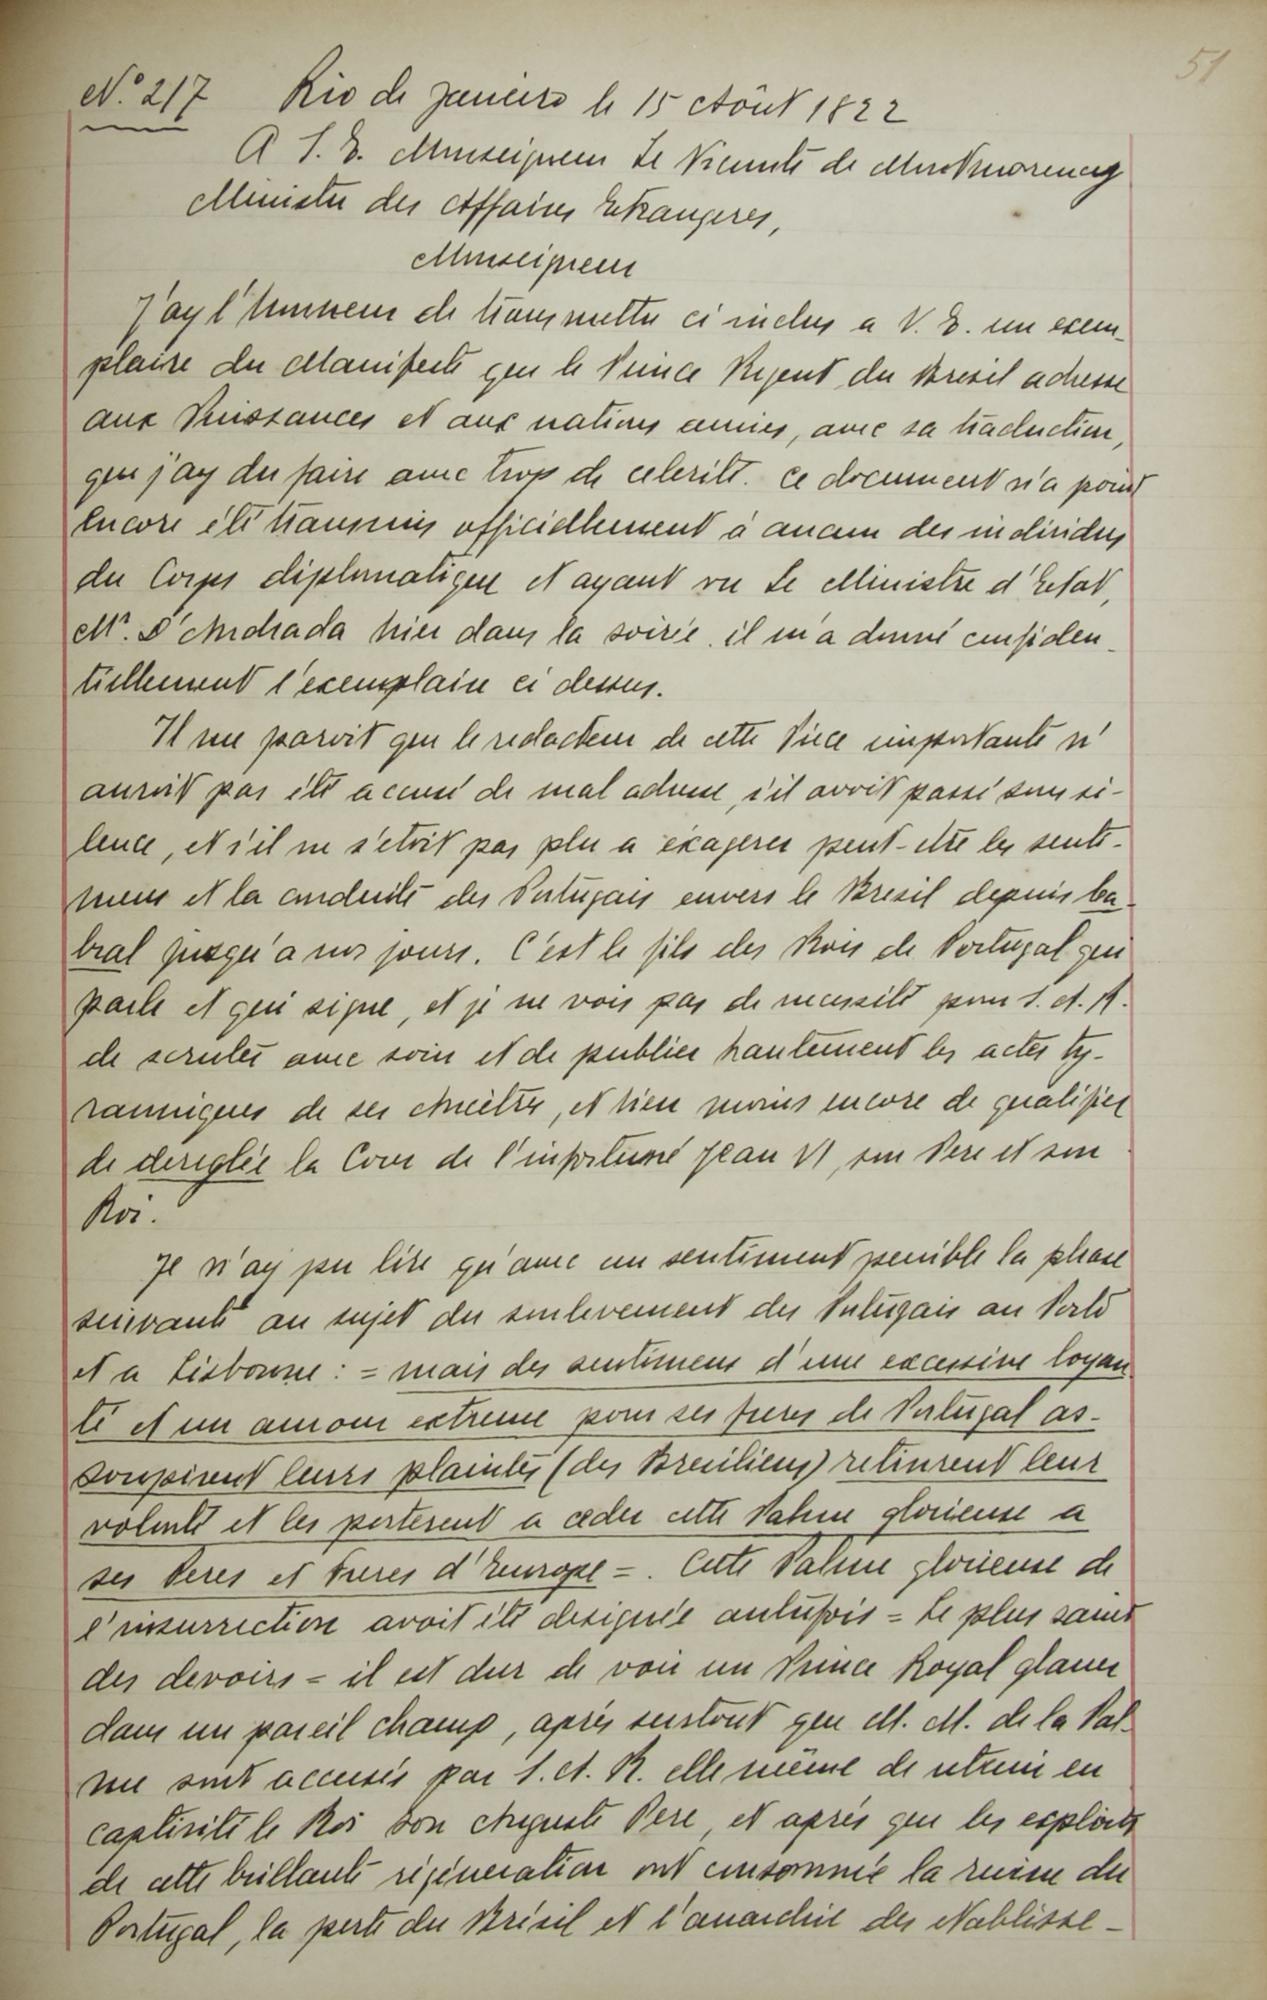 51
N.º 217 Rio de Janeiro le 15 Aôut 1822
A S. E. Monseigneur Le Vicomte de Montmorency
Ministre des Affaires Etrangeres,
Monseigneur
J'ay l'honneur de transmettre ci inclus a V. E. un exem-
plaire du Manifeste que le Prince Regent du Bresil adresse
aux Puissances et aux nations amies, avec sa traduction,
que j'ay du faire avec trop de celerité. ce document n'a point
encore été transmis officiellement à aucun des individus
du Corps diplomatique et ayant vu Le Ministre d'Etat,
Mr. D'Andrada hier dans la soirée. il m'a donné confiden-
tiellement l'exemplaire ci dessus.
Il me paroit que le redacteur de cette Piece importante n'
auroit pas été accusé de mal adresse, s'il avoit passé sous si-
lence, et s'il ne s'etoit pas plu a éxagerer peut-etre les senti-
mens et la conduite des Portugais envers le Bresil depuis Ca-
bral jusqu'a nos jours. C'est le fils des Rois de Portugal qui
parle et qui signe, et je ne vois pas de necessité pour S. A. R.
de scruter avec soin et de publier hautement les actes ty-
ranniques de ses Ancètres, et bien moins encore de qualifier
de dereglée la Cour de l'infortuné Jean VI, son Pere et son
Roi.
Je n'ay pu lire qu'avec un sentiment penible la phrase
suivante au sujet du soulevement des Portugais au Porto
et a Lisbonne : = mais des sentimens d'une excessive loyau-
té et un amour extreme pour ses freres de Portugal as-
soupirent leurs plaintes (des Bresiliens) retinrent leur
volonté et les porterent a ceder cette Palme glorieuse a
ses Peres et Freres d'Europe = . Cette Palme glorieuse de
l'insurrection avoit été designée autrefois = Le plus saint
des devoirs = il est dur de voir un Prince Royal glaner
dans un pareil champ, après surtout que M. M. de la Pal-
me sont accusés par S. A. R. elle même de retenir en
captivité le Roi son Auguste Pere, et après que les exploits
de cette brillante régéneration ont consommée la ruine du
Portugal, la perte du Brésil et l'anarchie des Etablisse-